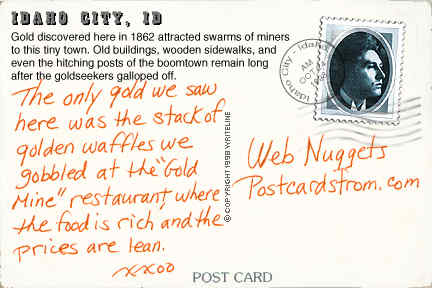 IDAHO CITY, ID
Gold discovered here in 1862 attracted swarms of miners
to this tiny town. Old buildings, wooden sidewalks, and
even the hitching posts of the boomtown remain long
after the goldseekers galloped off.
The only gold we saw
here was the stack of
golden waffles we
gobbled at the "Gold
Mine" restaurant, where
the food is rich and the
prices are lean.
xxoo
© COPYRIGHT 1998 WRITELINE
Idaho City - Idaho
AM
Web Nuggets
Postcardstrom.com
POST CARD